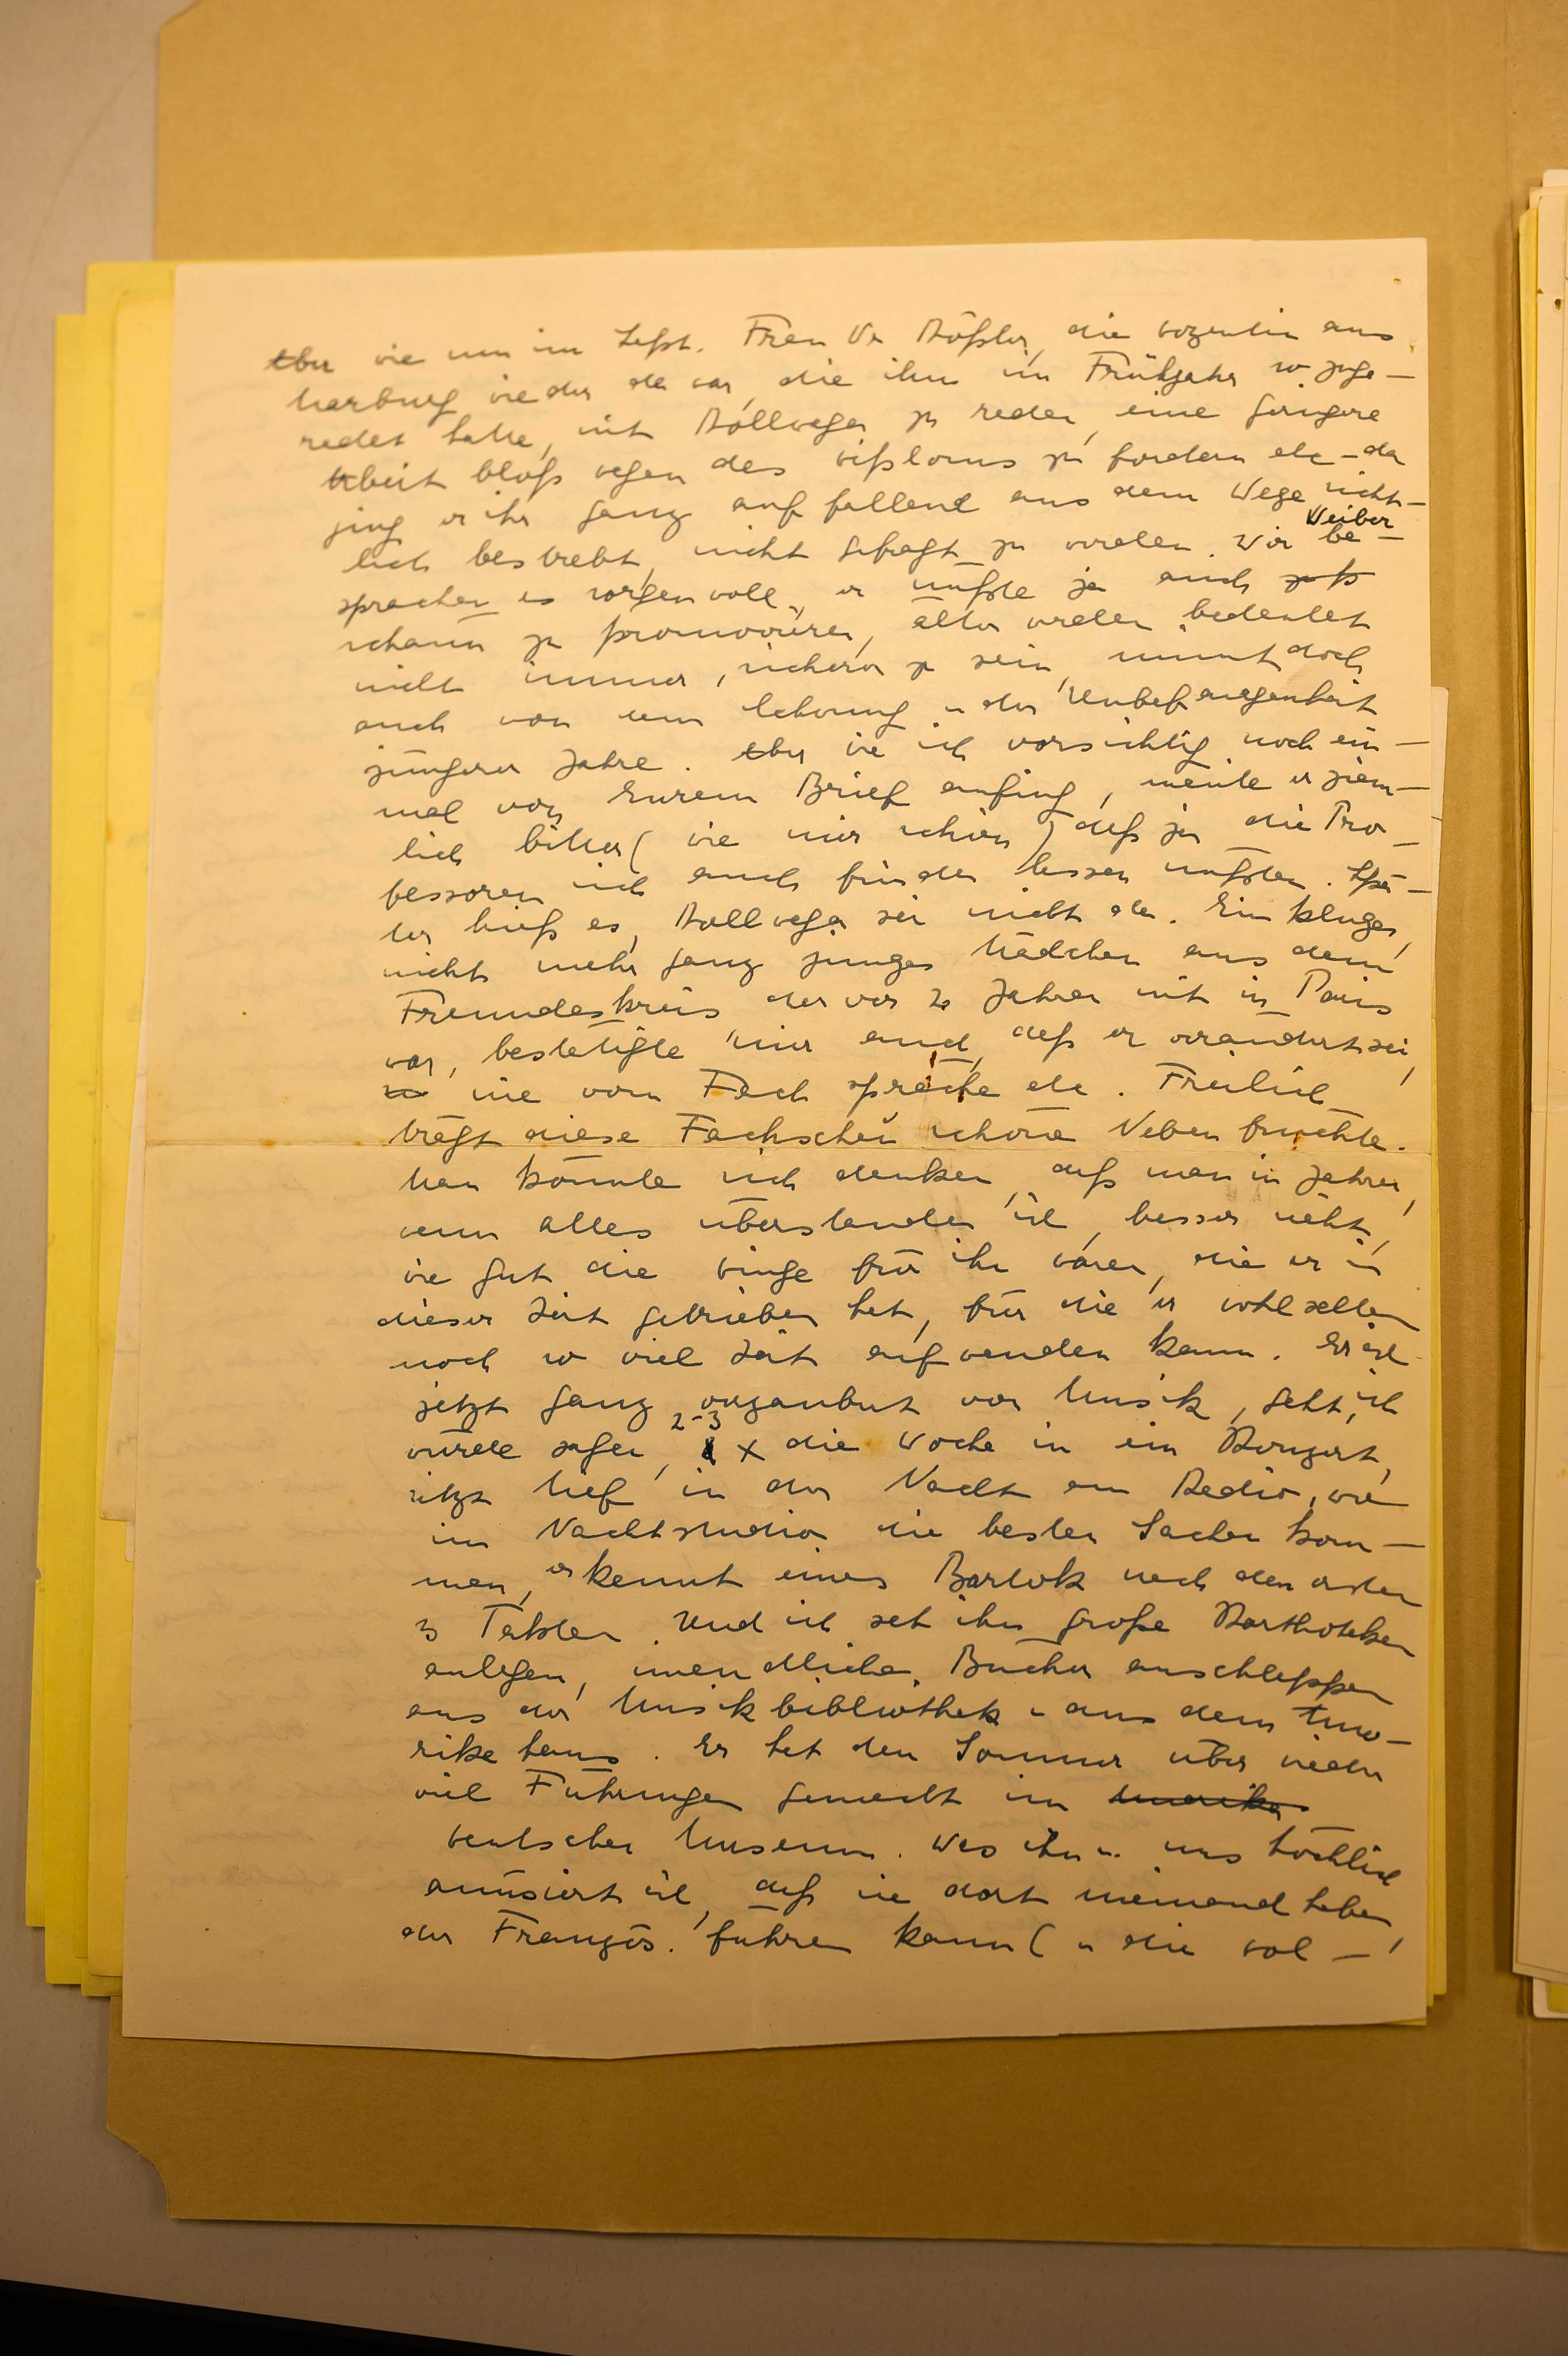 Aber wie nun im Sept. Frau Dr Rößler, die Dozentin aus
Marburg wieder da war, die ihm im Frühjahr so zuge-
redet hatte, mit Rollwagen zu reden, eine geringere
Arbeit bloß wegen des Diploms zu fordern etc - da
ging er ihr ganz auffallend aus dem Wege sicht-
lich bestrebt, nicht gefragt zu werden. Wir Weiber be-
sprachen es sorgenvoll, er müßte ja auch
schaun zu promovieren, älter werden bedeutet
nicht immer, sicherer zu sein, nimmt doch
auch von dem Schwung u der Unbefangenheit
jüngerer Jahre. Aber wie ich vorsichtig noch ein-
mal von Eurem Brief anfing, meinte er ziem-
lich bitter (wie mir schien) daß ja die Pro-
fessoren sich auch finden lassen müßten. Spä-
ter hieß es, Rollwagen sei nicht da. Ein kluges,
nicht mehr ganz junges Mädchen aus dem
Freundeskreis der vor 2 Jahren mit in Paris
war, bestätigte mir auch, daß er verändert sei,
nie vom Fach spräche etc. Freilich
trägt diese Fachscheu schöne Nebenfrüchte.
Man könnte sich denken, daß man in Jahren,
wenn alles überstanden ist, besser sieht,
wie gut die Dinge für ihn waren, die er in
dieser Zeit getrieben hat, für die er wohl selten
noch so viel Zeit aufwenden kann. Er ist
jetzt ganz verzaubert von Musik, geht, ich
würde sagen, 2-3 x die Woche in ein Konzert,
sitzt tief in der Nacht am Radio, wo
im Nachtstudio die besten Sachen kom-
men, er kennt einen Bartok nach den ersten
3 Takten. Und ich seh ihn große Kartotheken
anlegen, unendliche Bücher anschleppen
aus der Musikbibliothek u aus dem Ame-
rikahaus. Er hat den Sommer über wieder
viel Führungen gemacht im Amerika
Deutschen Museum. Was ihn u. uns höchlich
amüsiert ist, daß sie dort niemand haben
der Französ. führen kann (u die Dol-